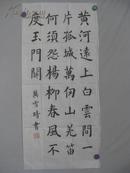 黄河遠上白雲間一
片孤城萬仞山羌笛
何須怨楊柳春風不
度玉門關
書